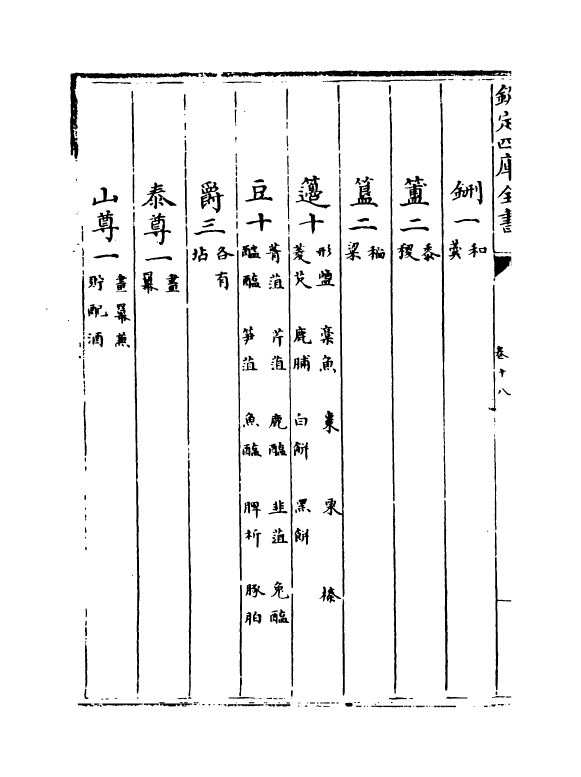 欽定四庫全書
卷十八
鉶一 和羹
簠二 黍稷
簋二 稻粱
籩十 形鹽 稾魚 棗 栗 榛 菱芡 鹿脯 白餅 黑餅
豆十 菁菹 芹菹 鹿醢 韭菹 兔醢 醓醢 笋菹 魚醢 脾析 豚胉
爵三 各有坫
泰尊一 畫羃
山尊一 畫羃兼貯配酒